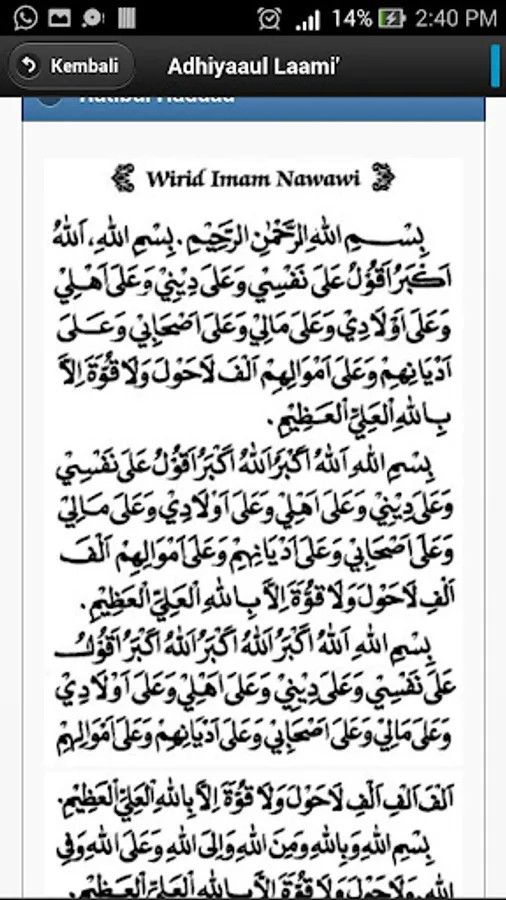 14% 2:40 PM
Kembali
Adhiyaaul Laami'
Ratibul Haddad
Wirid Imam Nawawi
بِسْــمِ اللهِ الرَّحْمٰنِ الرَّحِيْمِ. بِسْمِ اللهِ، اَللهُ
اَكْبَرُ اَقُوْلُ عَلَى نَفْسِي وَعَلَى دِيْنِيْ وَعَلَى اَهْلِيْ
وَعَلَى اَوْلَادِيْ وَعَلَى مَالِيْ وَعَلَى اَصْحَابِيْ وَعَــلَى
اَدْيَانِهِمْ وَعَلَى اَمْوَالِهِمْ اَلْفَ لَاحَوْلَ وَلَا قُوَّةَ اِلاَّ
بِاللهِ الْعَلِيِّ الْعَــظِيْمِ.
بِسْمِ اللهِ اَللهُ اَكْبَرُ اَللهُ اَكْبَرُ اَقُوْلُ عَلَى نَفْسِيْ
وَعَلَى دِيْنِيْ وَعَلَى اَهْلِيْ وَعَلَى اَوْلَادِيْ وَعَلَى مَــالِيْ
وَعَلَى اَصْحَابِيْ وَعَلَى اَدْيَانِهِمْ وَعَلَى اَمْوَالِهِمْ اَلْفَ
اَلْفِ لَاحَوْلَ وَلَا قُوَّةَ اِلاَّ بِاللهِ الْعَلِيِّ الْعَظِيْمِ.
بِسْمِ اللهِ اَللهُ اَكْبَرُ اَللهُ اَكْبَرُ اَللهُ اَكْبَرُ اَقُوْلُ
عَلَى نَفْسِيْ وَعَلَى دِيْنِيْ وَعَلَى اَهْلِيْ وَعَلَى اَوْلَادِيْ
وَعَلَى مَالِيْ وَعَلَى اَصْحَابِيْ وَعَلَى اَدْيَانِهِمْ وَعَلَى اَمْوَالِهِمْ
اَلْفَ اَلْفِ اَلْفِ لَاحَوْلَ وَلَا قُوَّةَ اِلاَّ بِاللهِ الْعَلِيِّ الْعَظِيْمِ.
بِسْمِ اللهِ وَبِاللهِ وَمِنَ اللهِ وَاِلَى اللهِ وَعَلَى اللهِ وَفِي
اللهِ، وَلَاحَوْلَ وَلَا قُوَّةَ اِلاَّ بِاللهِ الْعَلِيِّ الْعَظِيْمِ.